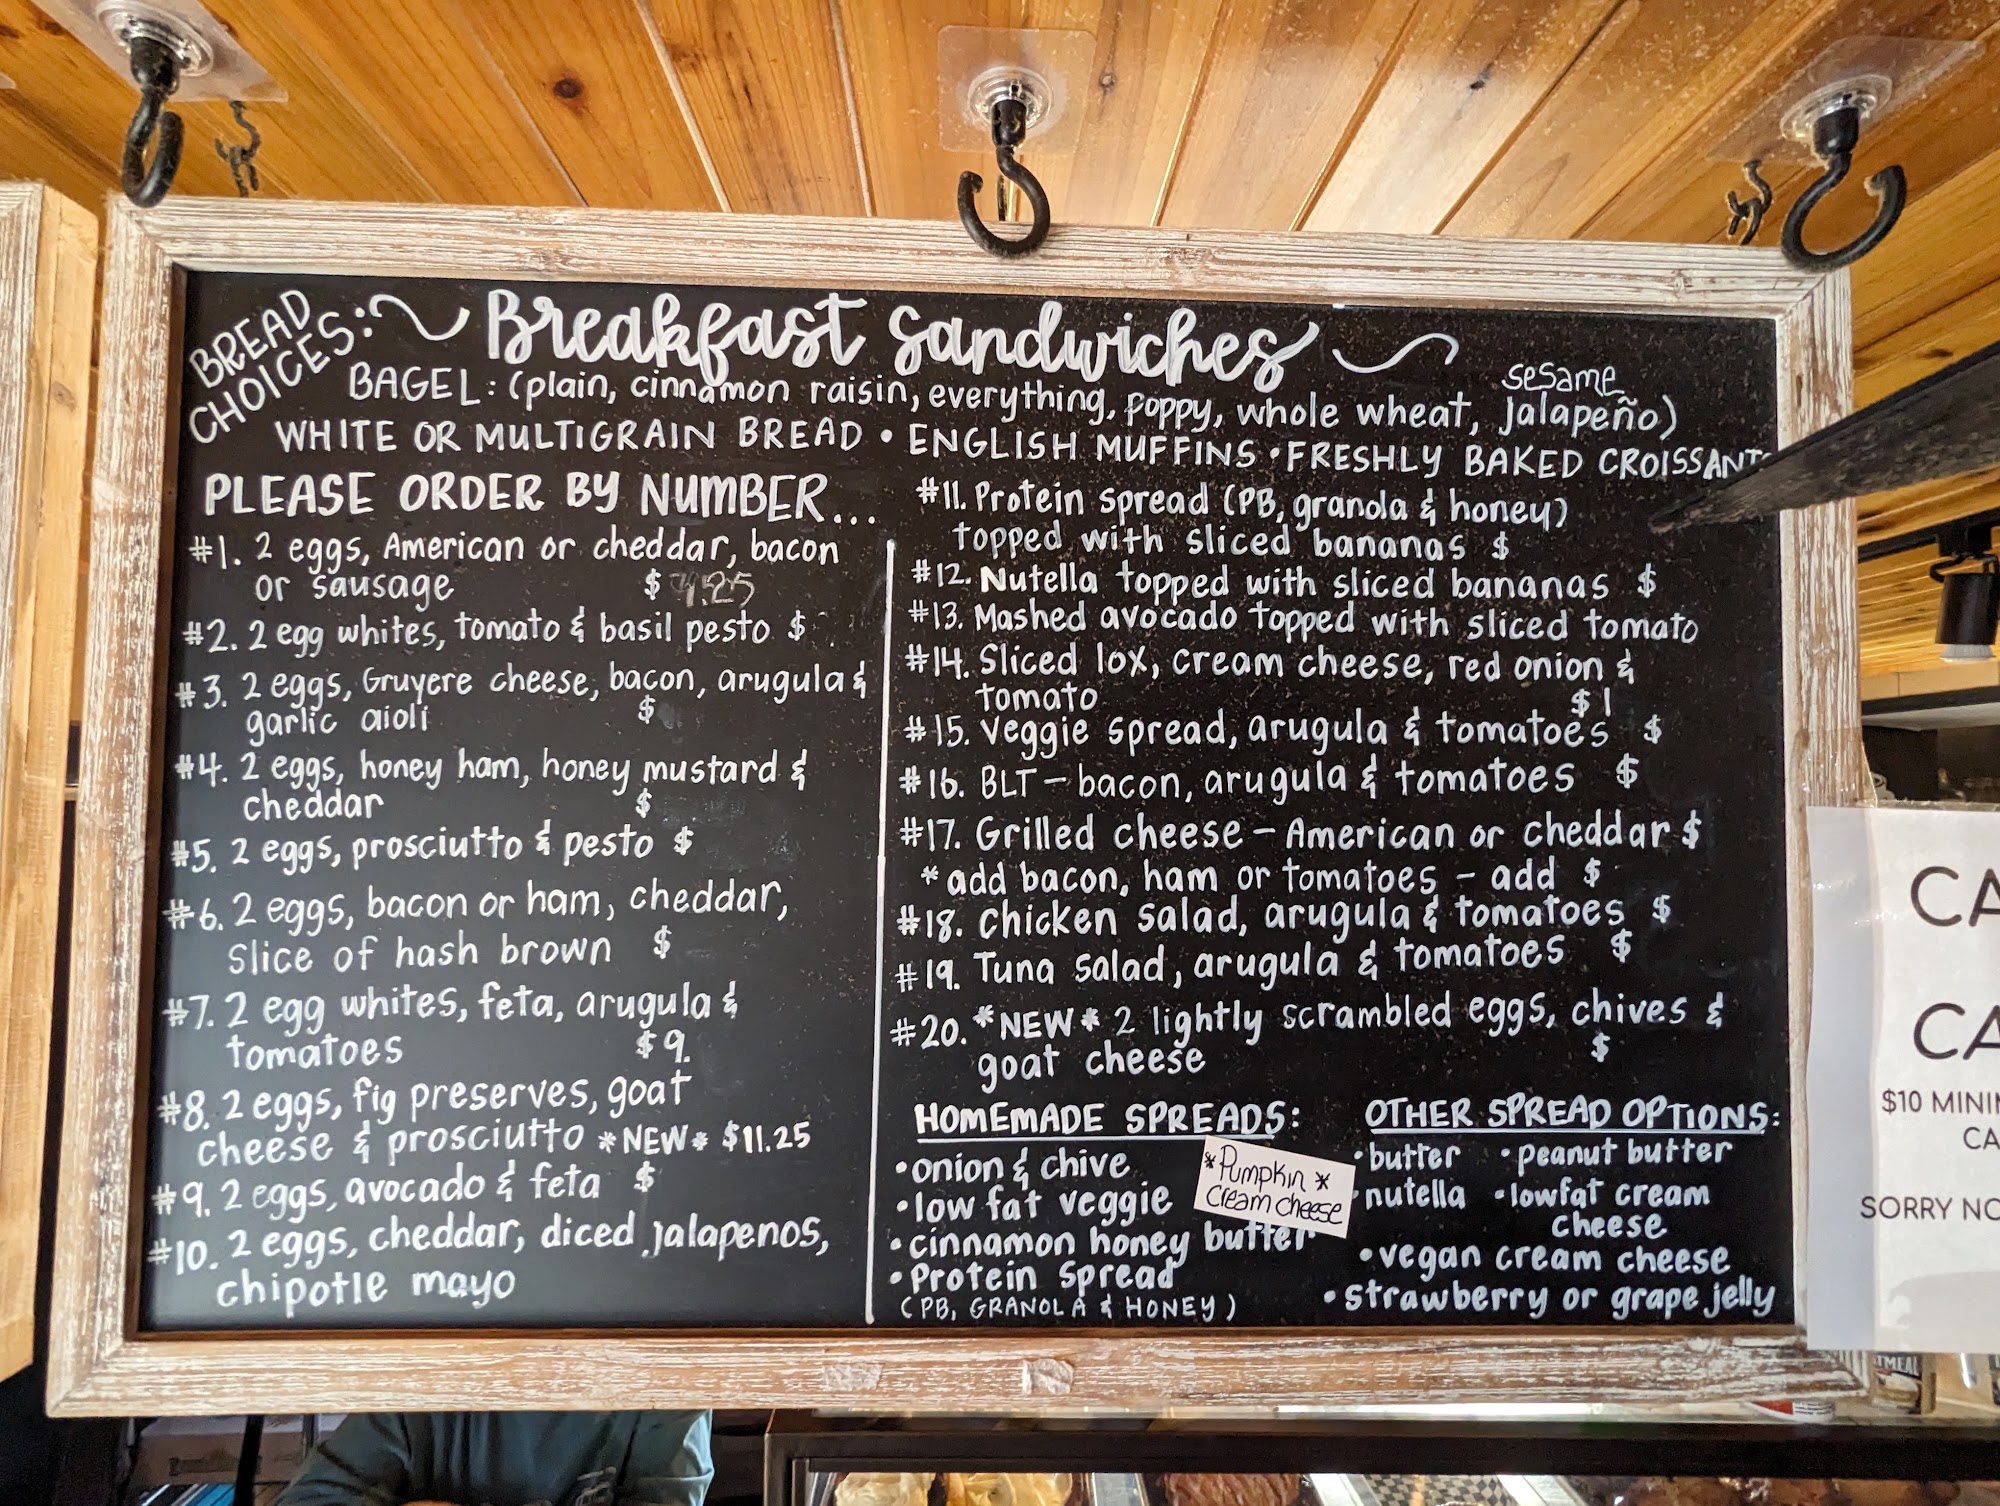 BREAD
CHOICES:
Breakfast Sandwiches
BAGEL: (plain, cinnamon raisin, everything, poppy, whole wheat, sesame
jalapeño)
WHITE OR MULTIGRAIN BREAD • ENGLISH MUFFINS • FRESHLY BAKED CROISSANTS
PLEASE ORDER BY NUMBER...
#1. 2 eggs, American or cheddar, bacon
or sausage $ 9.25
#2. 2 egg whites, tomato & basil pesto $
#3. 2 eggs, Gruyere cheese, bacon, arugula &
garlic aioli $
#4. 2 eggs, honey ham, honey mustard &
cheddar $
#5. 2 eggs, prosciutto & pesto $
#6. 2 eggs, bacon or ham, cheddar,
slice of hash brown $
#7. 2 egg whites, feta, arugula &
tomatoes $9.
#8. 2 eggs, fig preserves, goat
cheese & prosciutto *NEW* $11.25
#9. 2 eggs, avocado & feta $
#10. 2 eggs, cheddar, diced jalapenos,
chipotle mayo
#11. Protein spread (PB, granola & honey)
topped with sliced bananas $
#12. Nutella topped with sliced bananas $
#13. Mashed avocado topped with sliced tomato
#14. Sliced lox, cream cheese, red onion &
tomato $1
#15. Veggie spread, arugula & tomatoes $
#16. BLT - bacon, arugula & tomatoes $
#17. Grilled cheese - American or cheddar $
* add bacon, ham or tomatoes - add $
#18. Chicken salad, arugula & tomatoes $
#19. Tuna salad, arugula & tomatoes $
#20. *NEW* 2 lightly scrambled eggs, chives &
goat cheese $
HOMEMADE SPREADS:
• onion & chive
• low fat veggie
• cinnamon honey butter
• Protein Spread
(PB, GRANOLA & HONEY)
*Pumpkin*
cream cheese
OTHER SPREAD OPTIONS:
• butter • peanut butter
• nutella • lowfat cream
cheese
• vegan cream cheese
• strawberry or grape jelly
CA
CA
$10 MINI
CA
SORRY NO